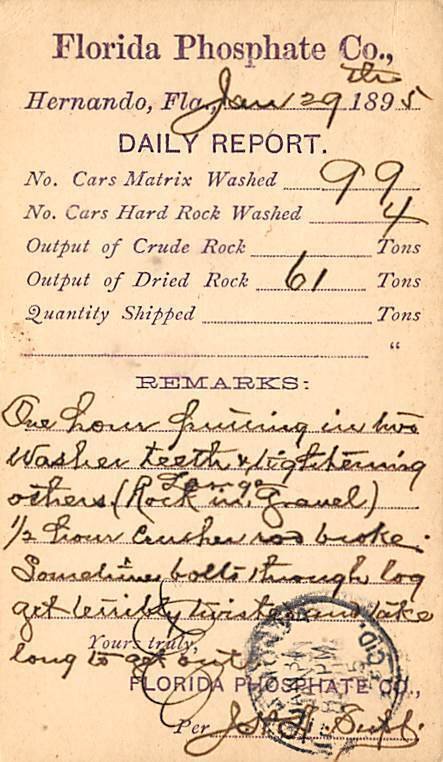 Florida Phosphate Co.,
Hernando, Fla., Jan 29th 1895
DAILY REPORT.
No. Cars Matrix Washed 99
No. Cars Hard Rock Washed 4
Output of Crude Rock Tons
Output of Dried Rock 61 Tons
Quantity Shipped Tons
"
REMARKS:
One hour putting in two
Washer teeth & tightening
others (Large Rock in Gravel)
1/2 hour Crusher rod broke.
Sometimes bolts through log
get terribly twisted and take
Yours truly,
long to get out
FLORIDA PHOSPHATE CO.,
Per Supt.